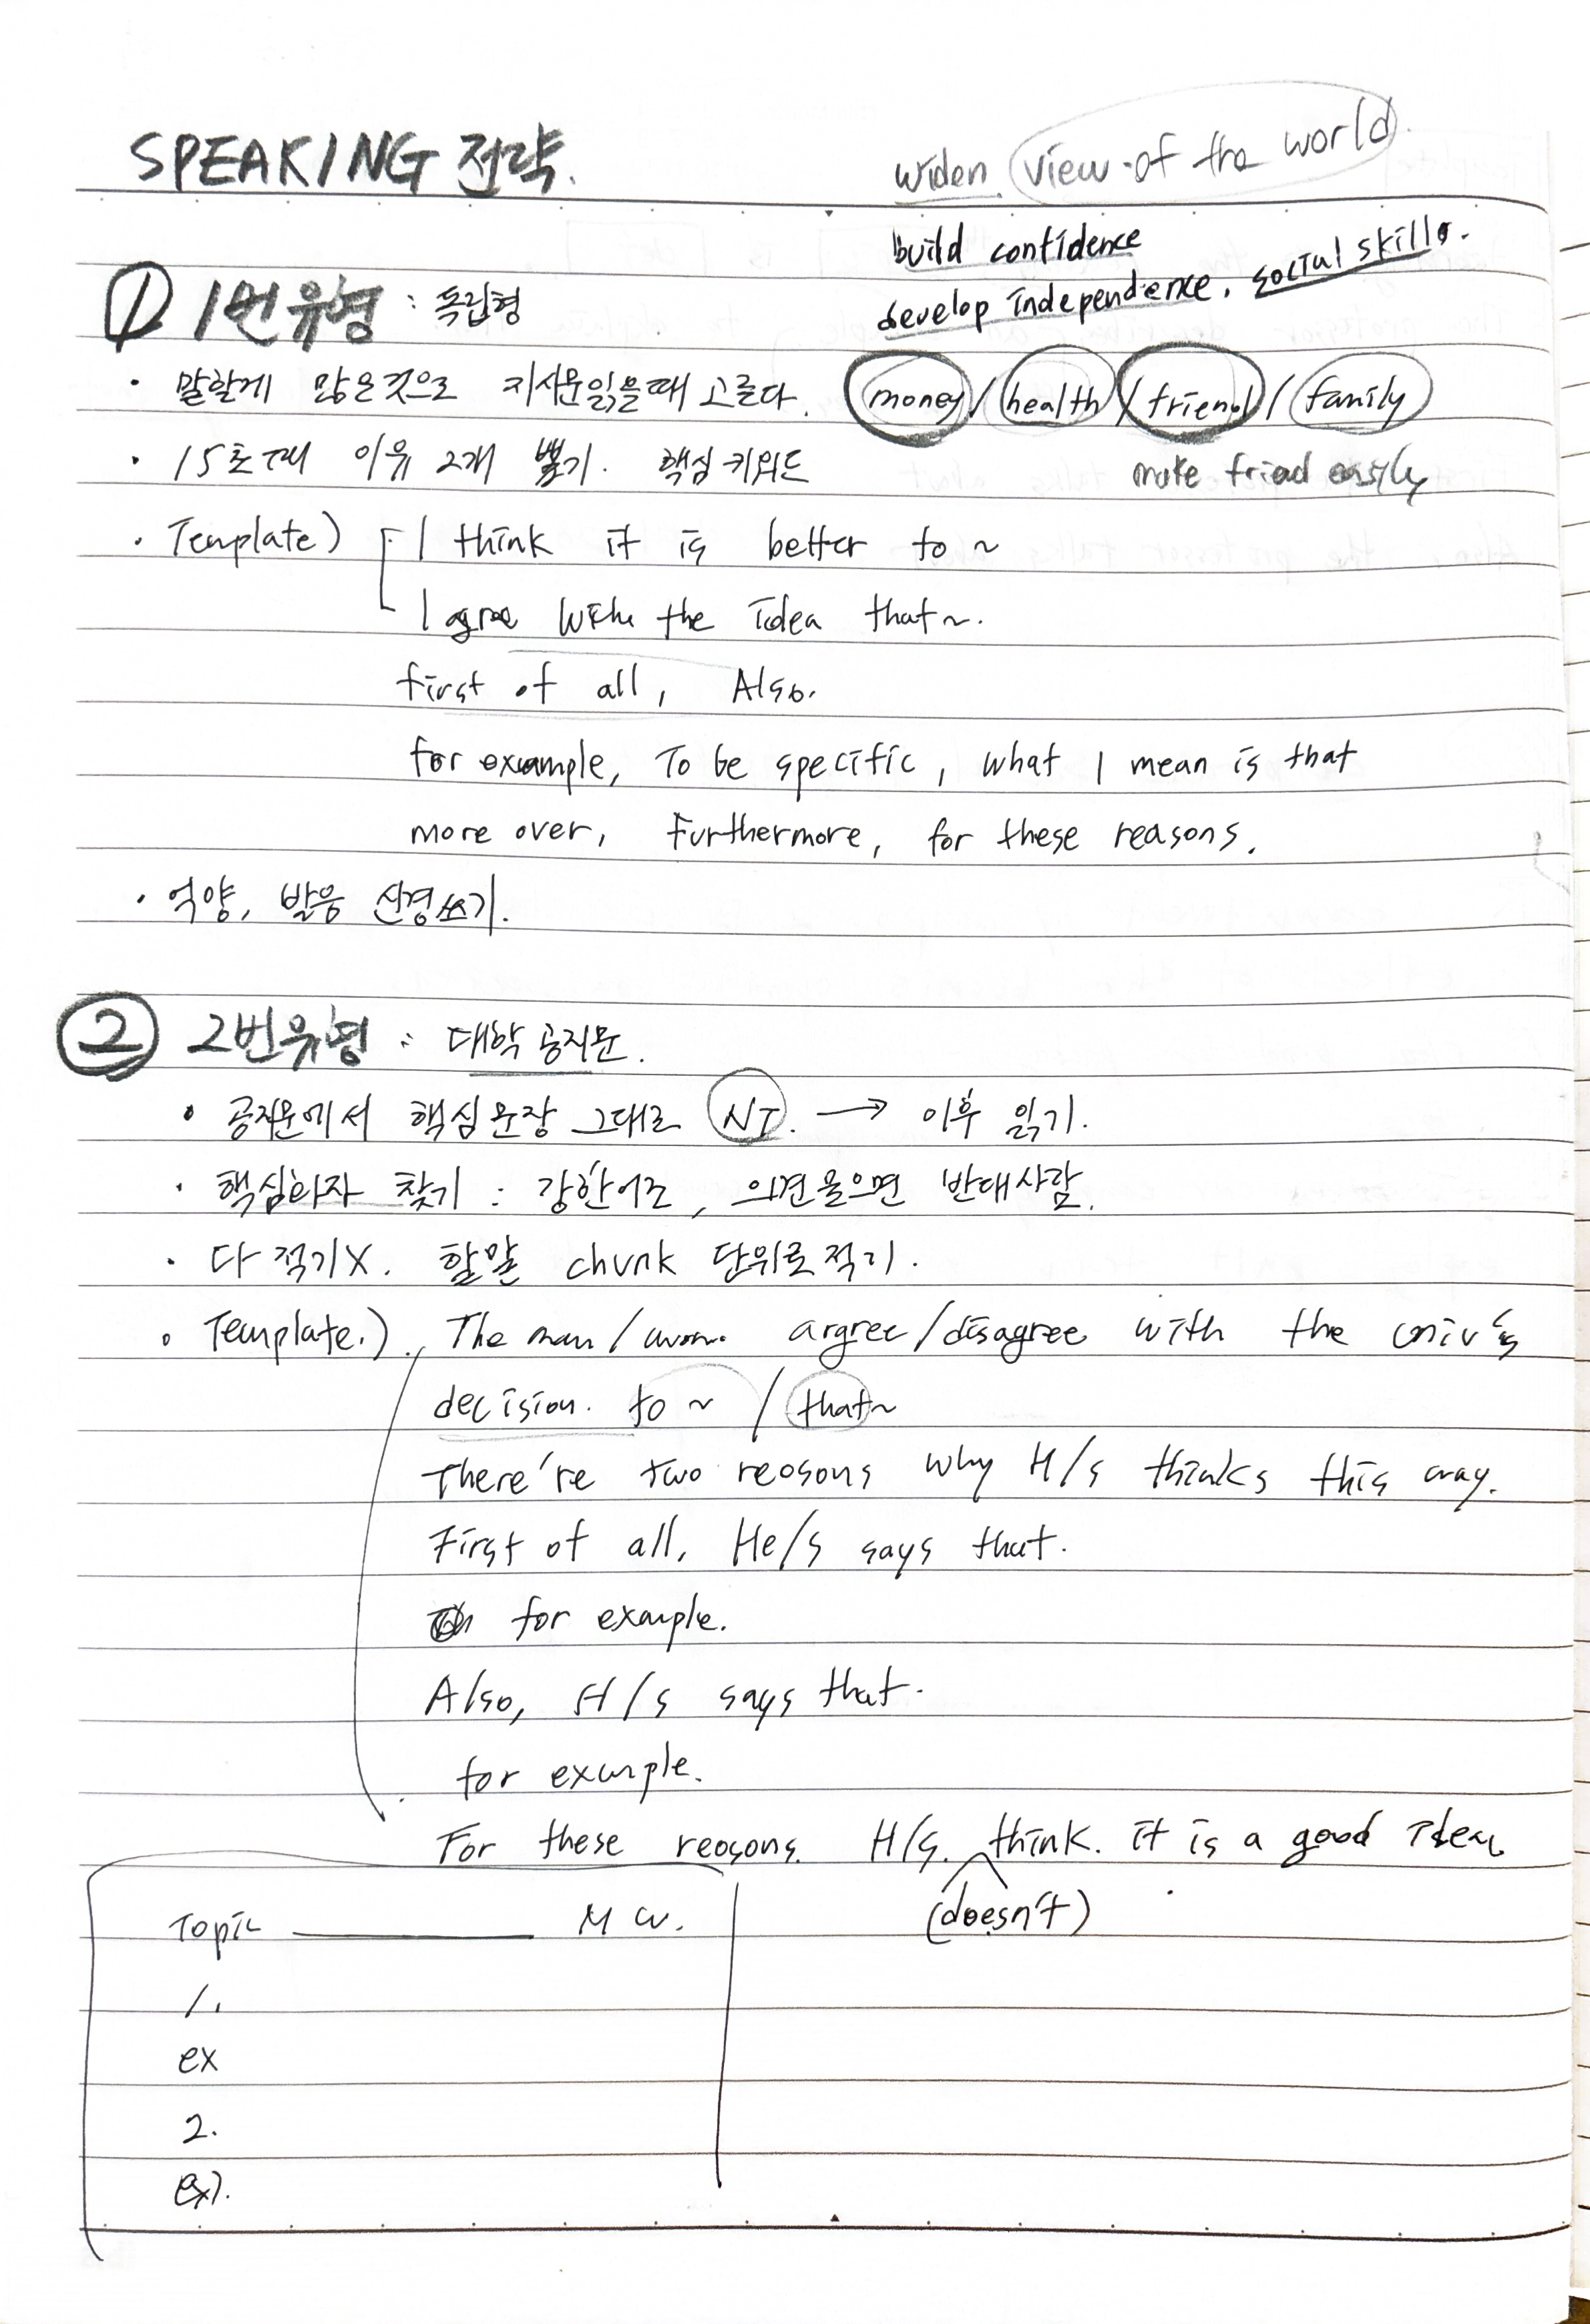 SPEAKING 전략.
widen view of the world.
build confidence
develop independence. social skills.
① 1번유형 : 독립형
· 말할게 많은것으로 지시문읽을때 고른다. money / health / friend / family
· 15초때 이유 2개 뽑기. 핵심 키워드 make friend easily
· Template) I think it is better to ~
I agree with the idea that ~.
first of all, Also.
for example, To be specific, what I mean is that
more over, Furthermore, for these reasons.
· 억양, 발음 신경쓰기.
② 2번유형 : 대학 공지문.
· 공지문에서 핵심문장 그대로 NT. → 이후 읽기.
· 핵심화자 찾기 : 강한어조, 의견물으면 반대사람.
· 다 적기X. 할말 chunk 단위로적기.
· Template.) The man / wom. argree/disagree with the univ's
decision. to ~ / that~
There're two reasons why H/s thinks this way.
First of all, He/s says that.
for example.
Also, H/s says that.
for example.
For these reasons. H/s. think. it is a good Idea
(doesn't)
Topic ________ M W.
1.
ex
2.
ex).